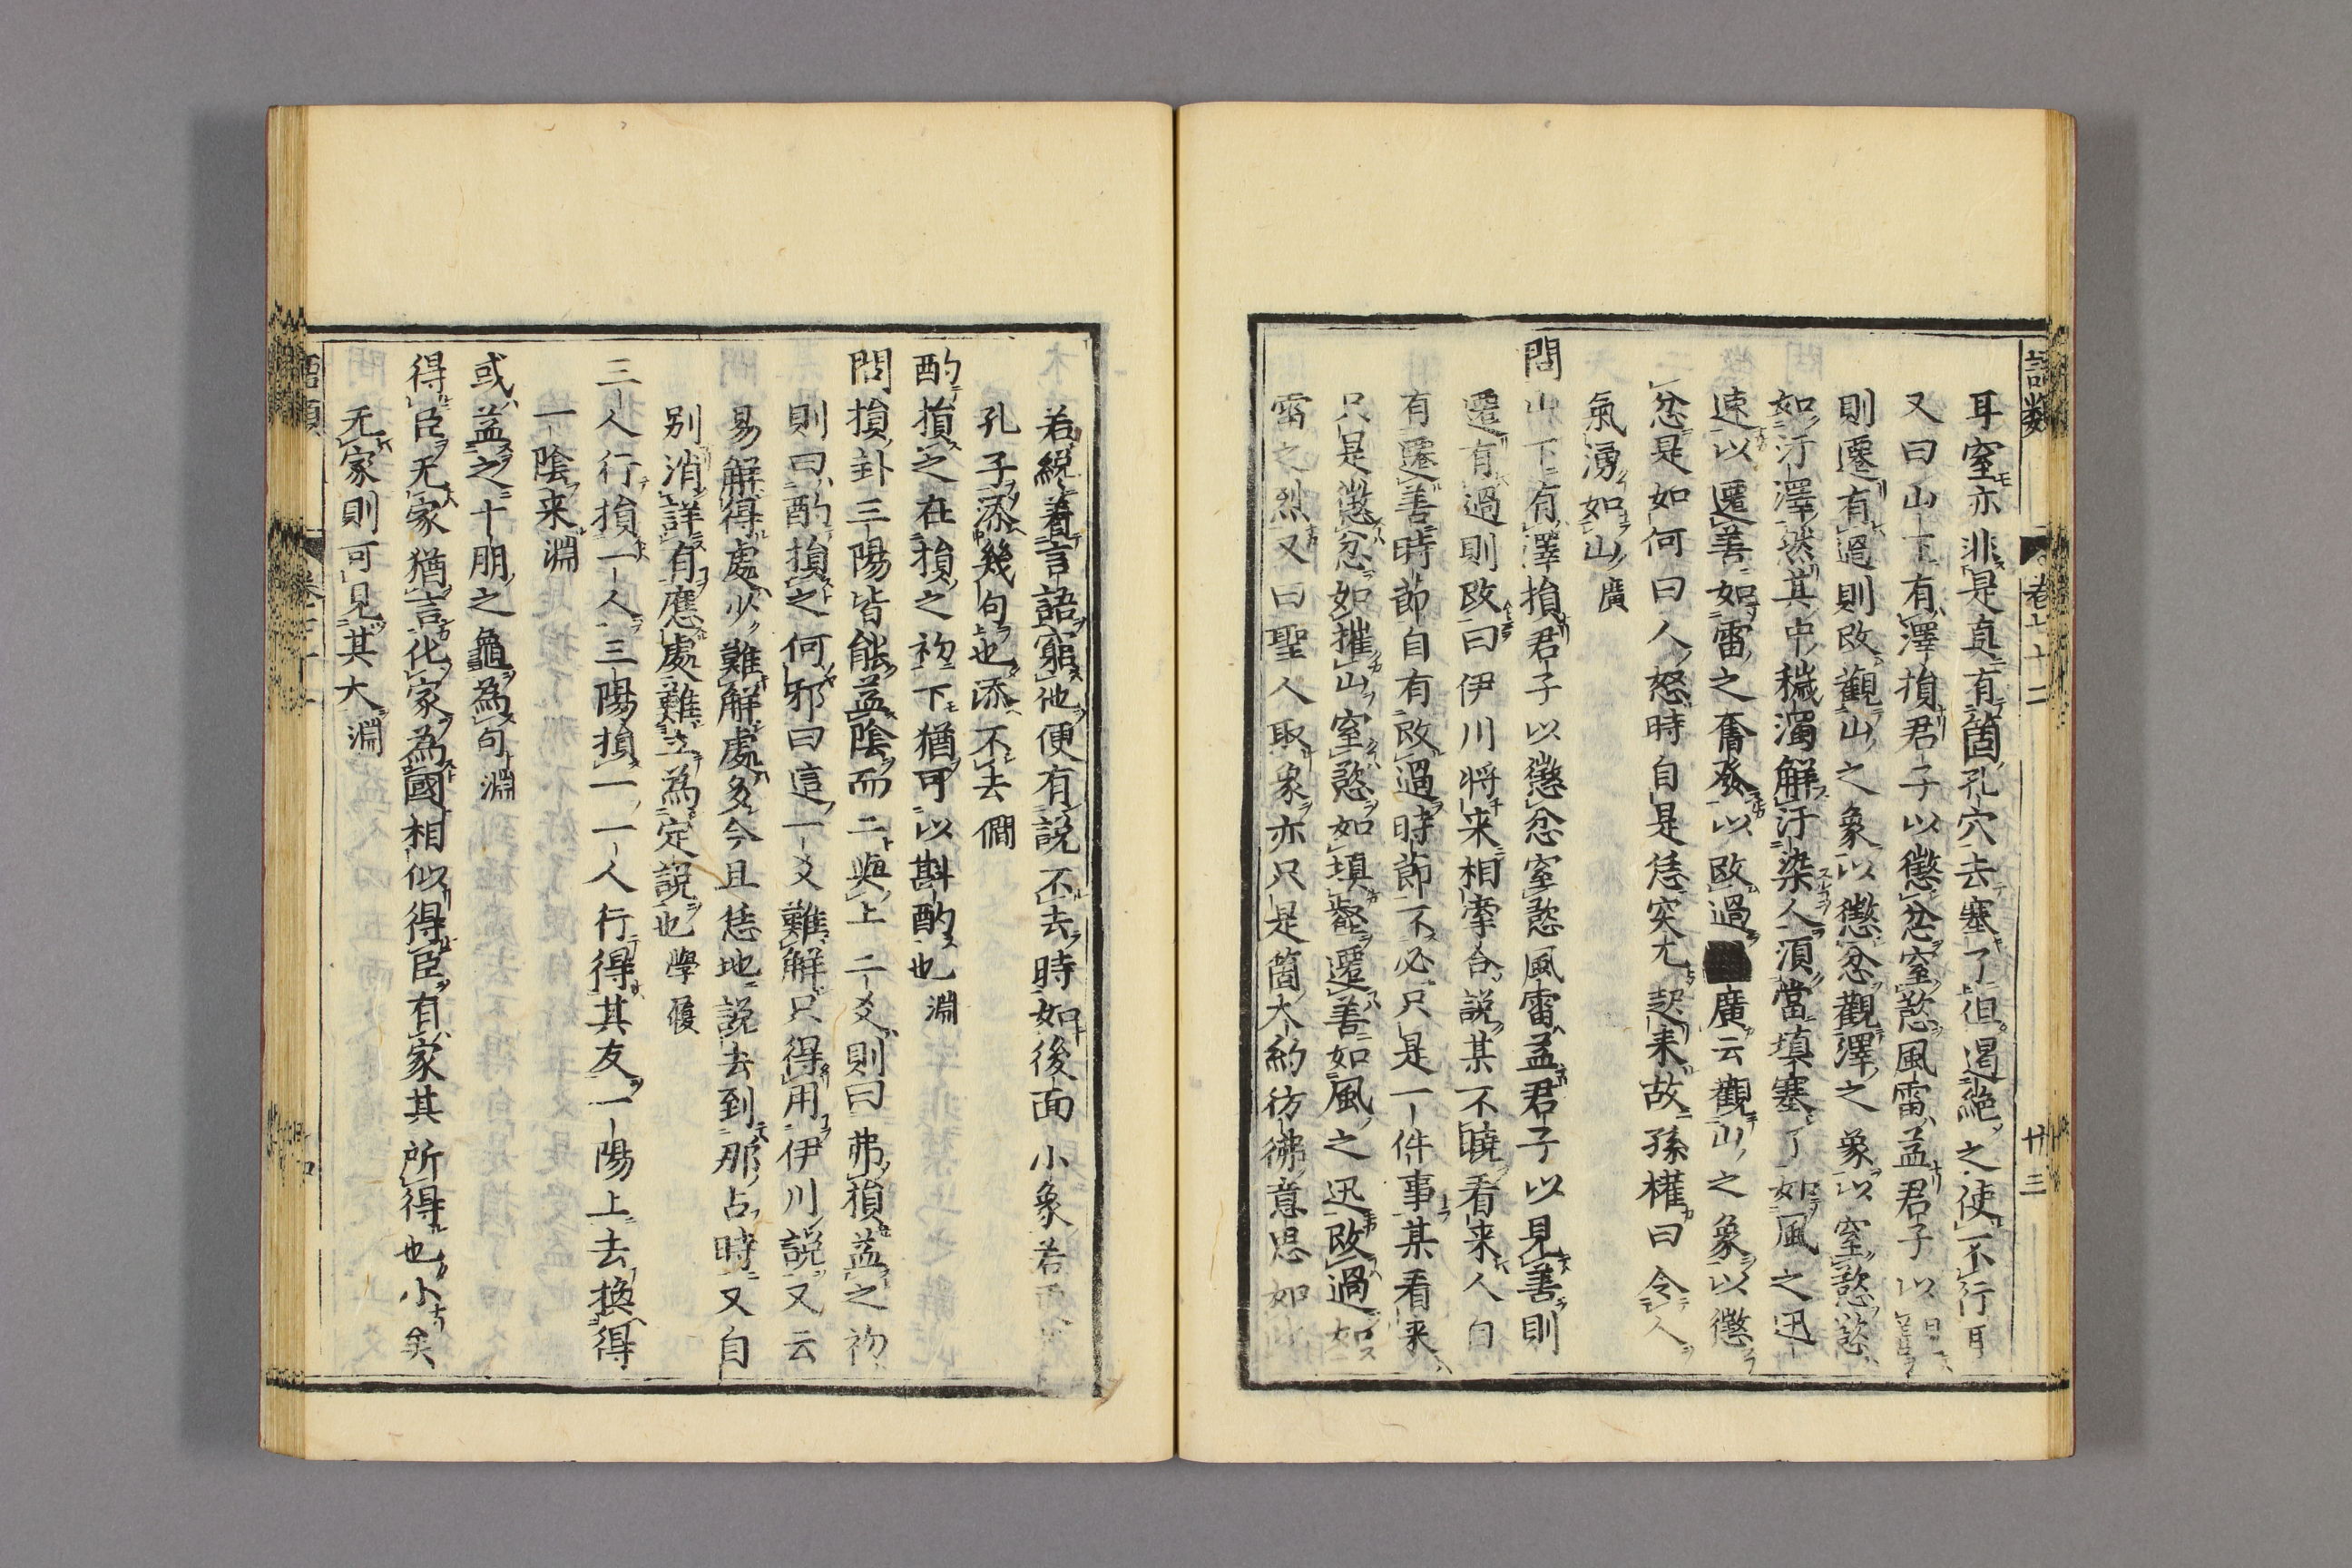 語類
卷七十二
廿三
耳窒亦非是真有箇孔穴去塞了但遏絕之使不行耳
又曰山下有澤損君子以懲忿窒慾風雷益君子以見善
則遷有過則改觀山之象以懲忿觀澤之象以窒慾慾
如汙澤然其中穢濁解汙染人須當填塞了如風之迅
速以遷善如雷之奮發以改過廣云觀山之象以懲
忿是如何曰人怒時自是恁突兀起来故孫權曰令人
氣湧如山廣
問山下有澤損君子以懲忿窒慾風雷益君子以見善則
遷有過則改曰伊川将来相牽合說某不曉看来人自
有遷善時節自有改過時節不必只是一件事某看来
只是懲忿如摧山窒慾如填壑遷善如風之迅改過如
雷之烈又曰聖人取象亦只是箇大約彷彿意思如此
若纔著言語窮他便有說不去時如後面小象若
孔子添幾句也添不去僩
酌損之在損之初下猶可以斟酌也淵
問損卦三陽皆能益陰而二與上二爻則曰弗損益之初
則曰酌損之何邪曰這一爻難解只得用伊川說又云
易解得處少難解處多今且恁地說去到那占時又自
别消詳有應處難立為定說也學履
三人行損一人三陽損一一人行得其友一陽上去換得
一陰来淵
或益之十朋之龜為句淵
得臣无家猶言化家為國相似得臣有家其所得也小矣
无家則可見其大淵
語類